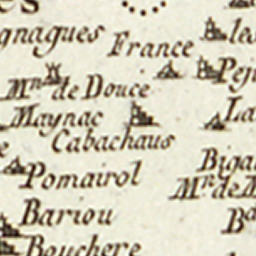 gnagues
France
les
Mⁿ de Douce
Peju
Maynac
La
Cabachaus
Pomairol
Biga
Mⁿ de M
Bariou
Ba
Bouchere